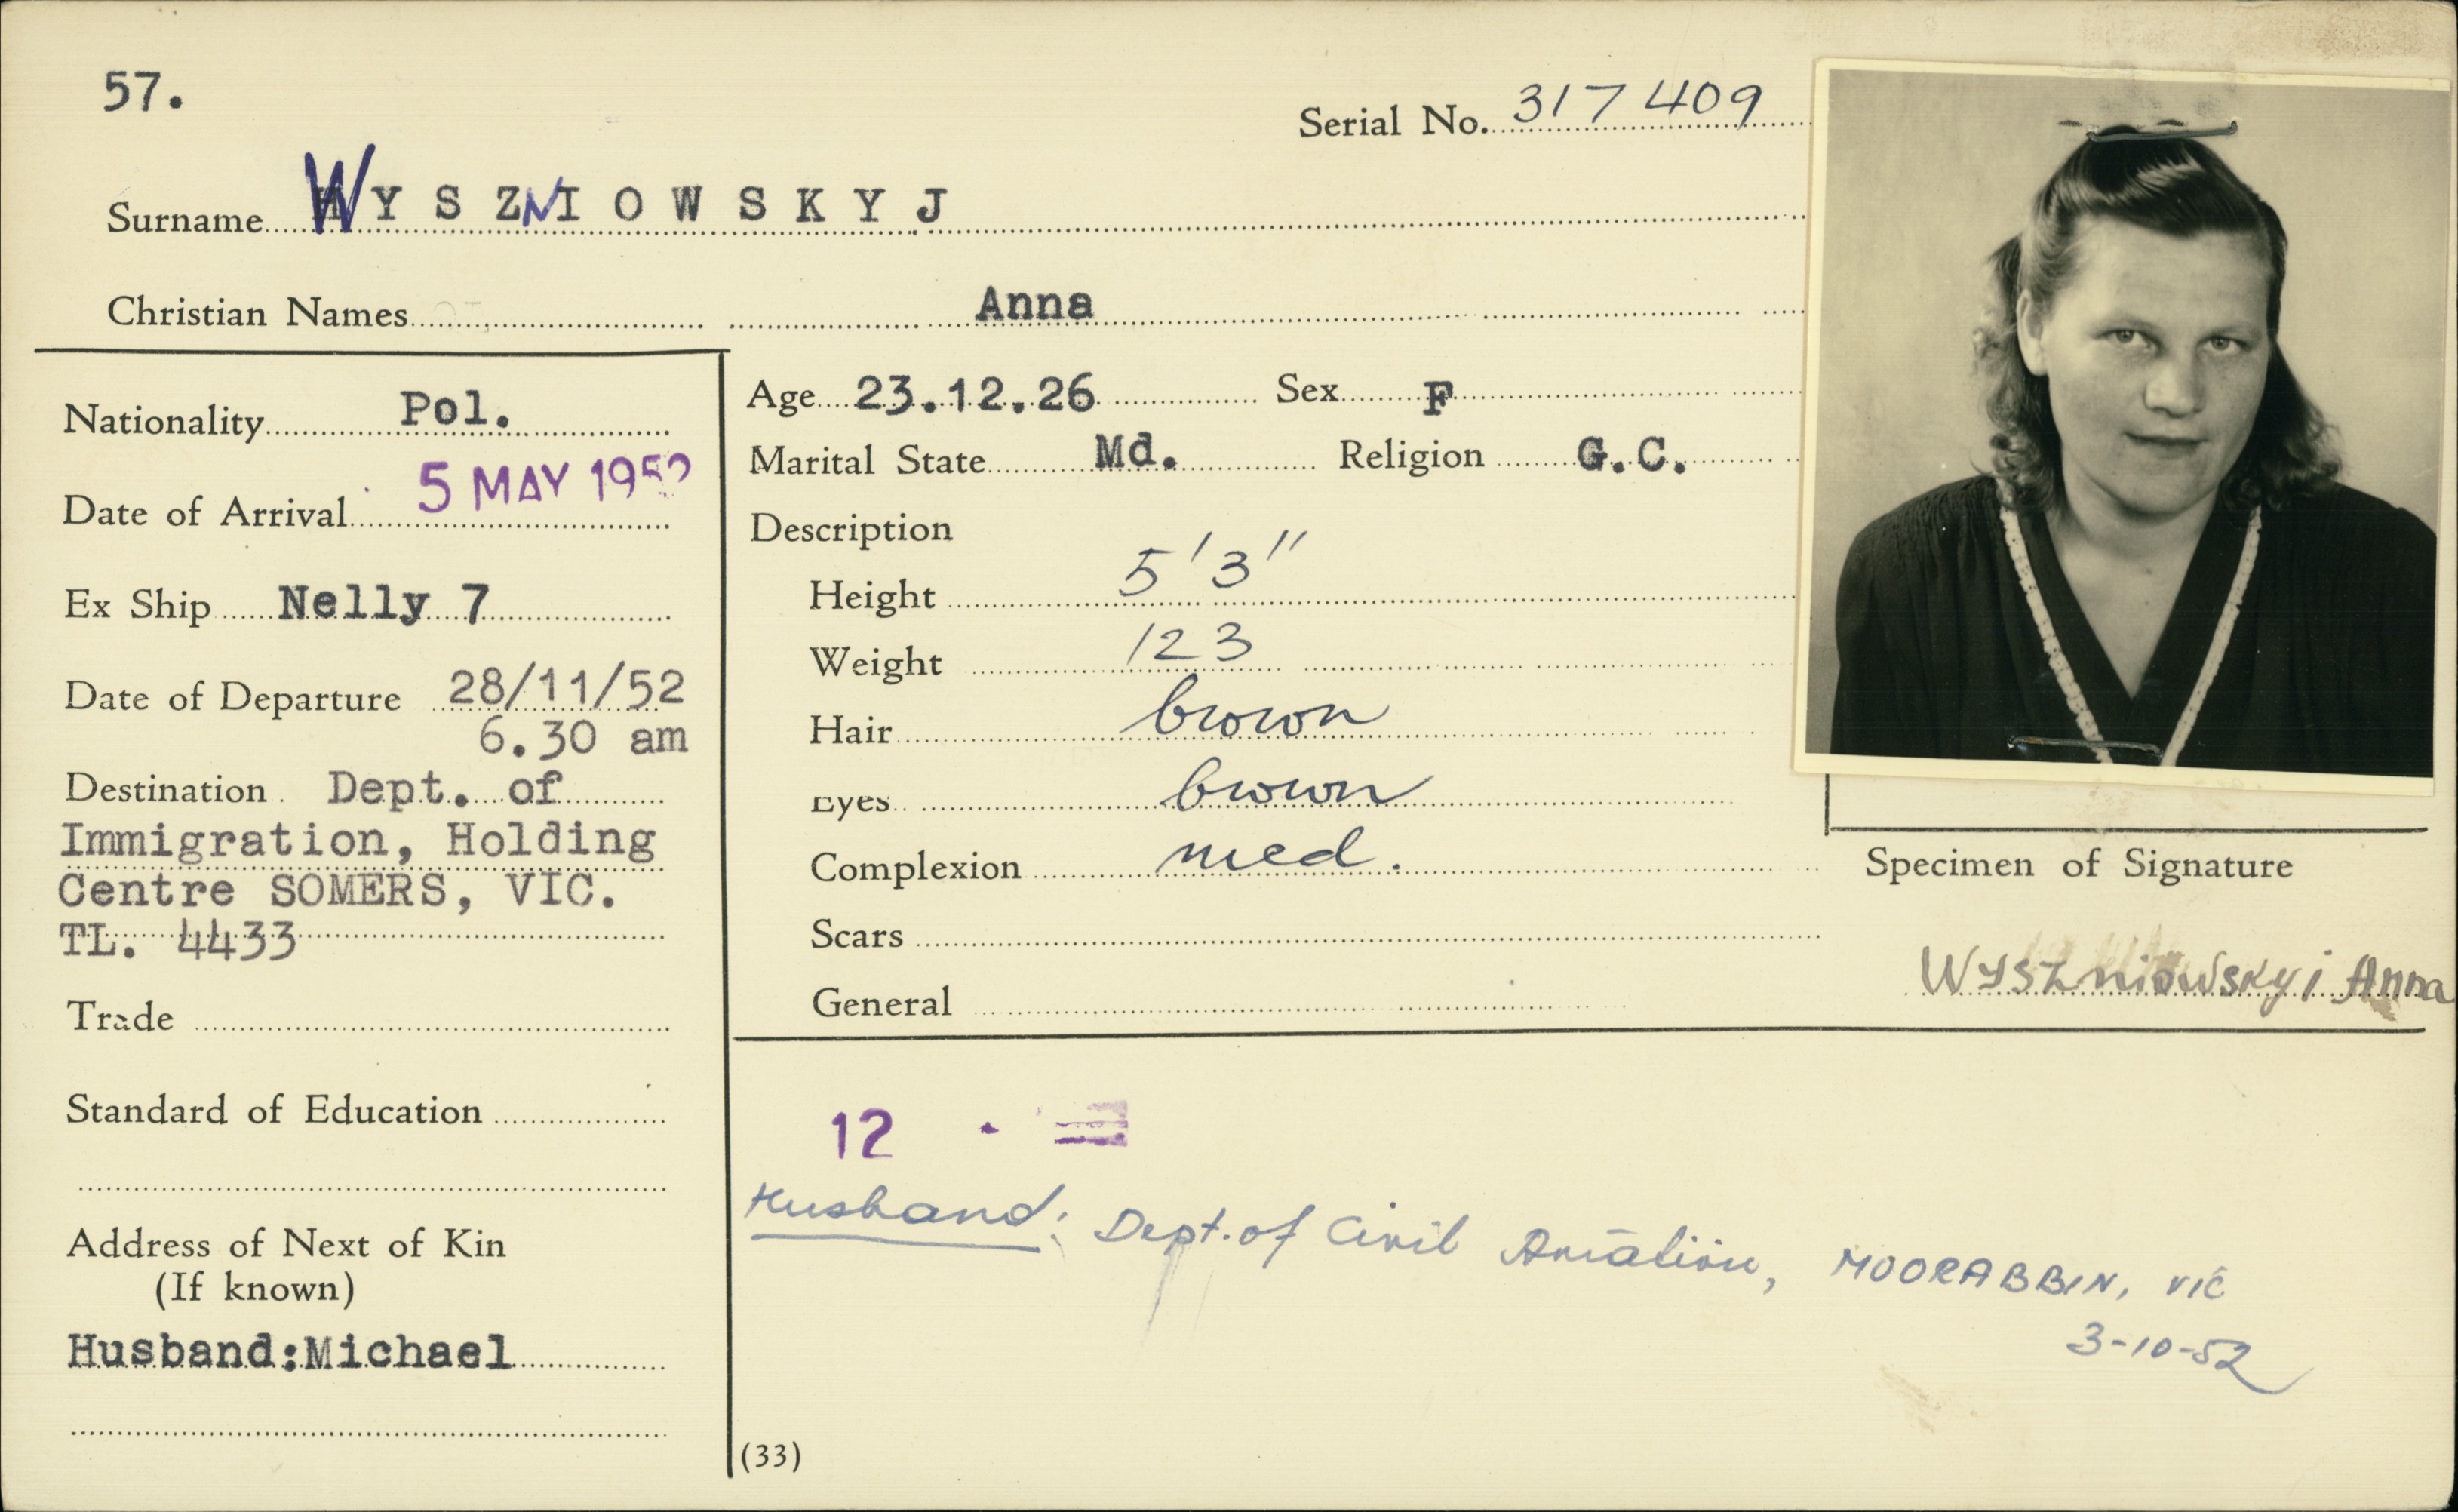 57.
Serial No. 317409
Surname WYSZNIOWSKYJ
Christian Names Anna
Nationality Pol.
Date of Arrival 5 MAY 1952
Ex Ship Nelly 7
Date of Departure 28/11/52
6.30 am
Destination Dept. of
Immigration, Holding
Centre SOMERS, VIC.
TL. 4433
Trade
Standard of Education
Address of Next of Kin
(If known)
Husband:Michael
Age 23.12.26 Sex F
Marital State Md. Religion G.C.
Description
Height 5'3"
Weight 123
Hair brown
Eyes brown
Complexion med.
Scars
General
Specimen of Signature
Wyszniowskyi Anna
12
Husband: Dept. of Civil Aviation, MOORABBIN, VIC
3-10-52
(33)